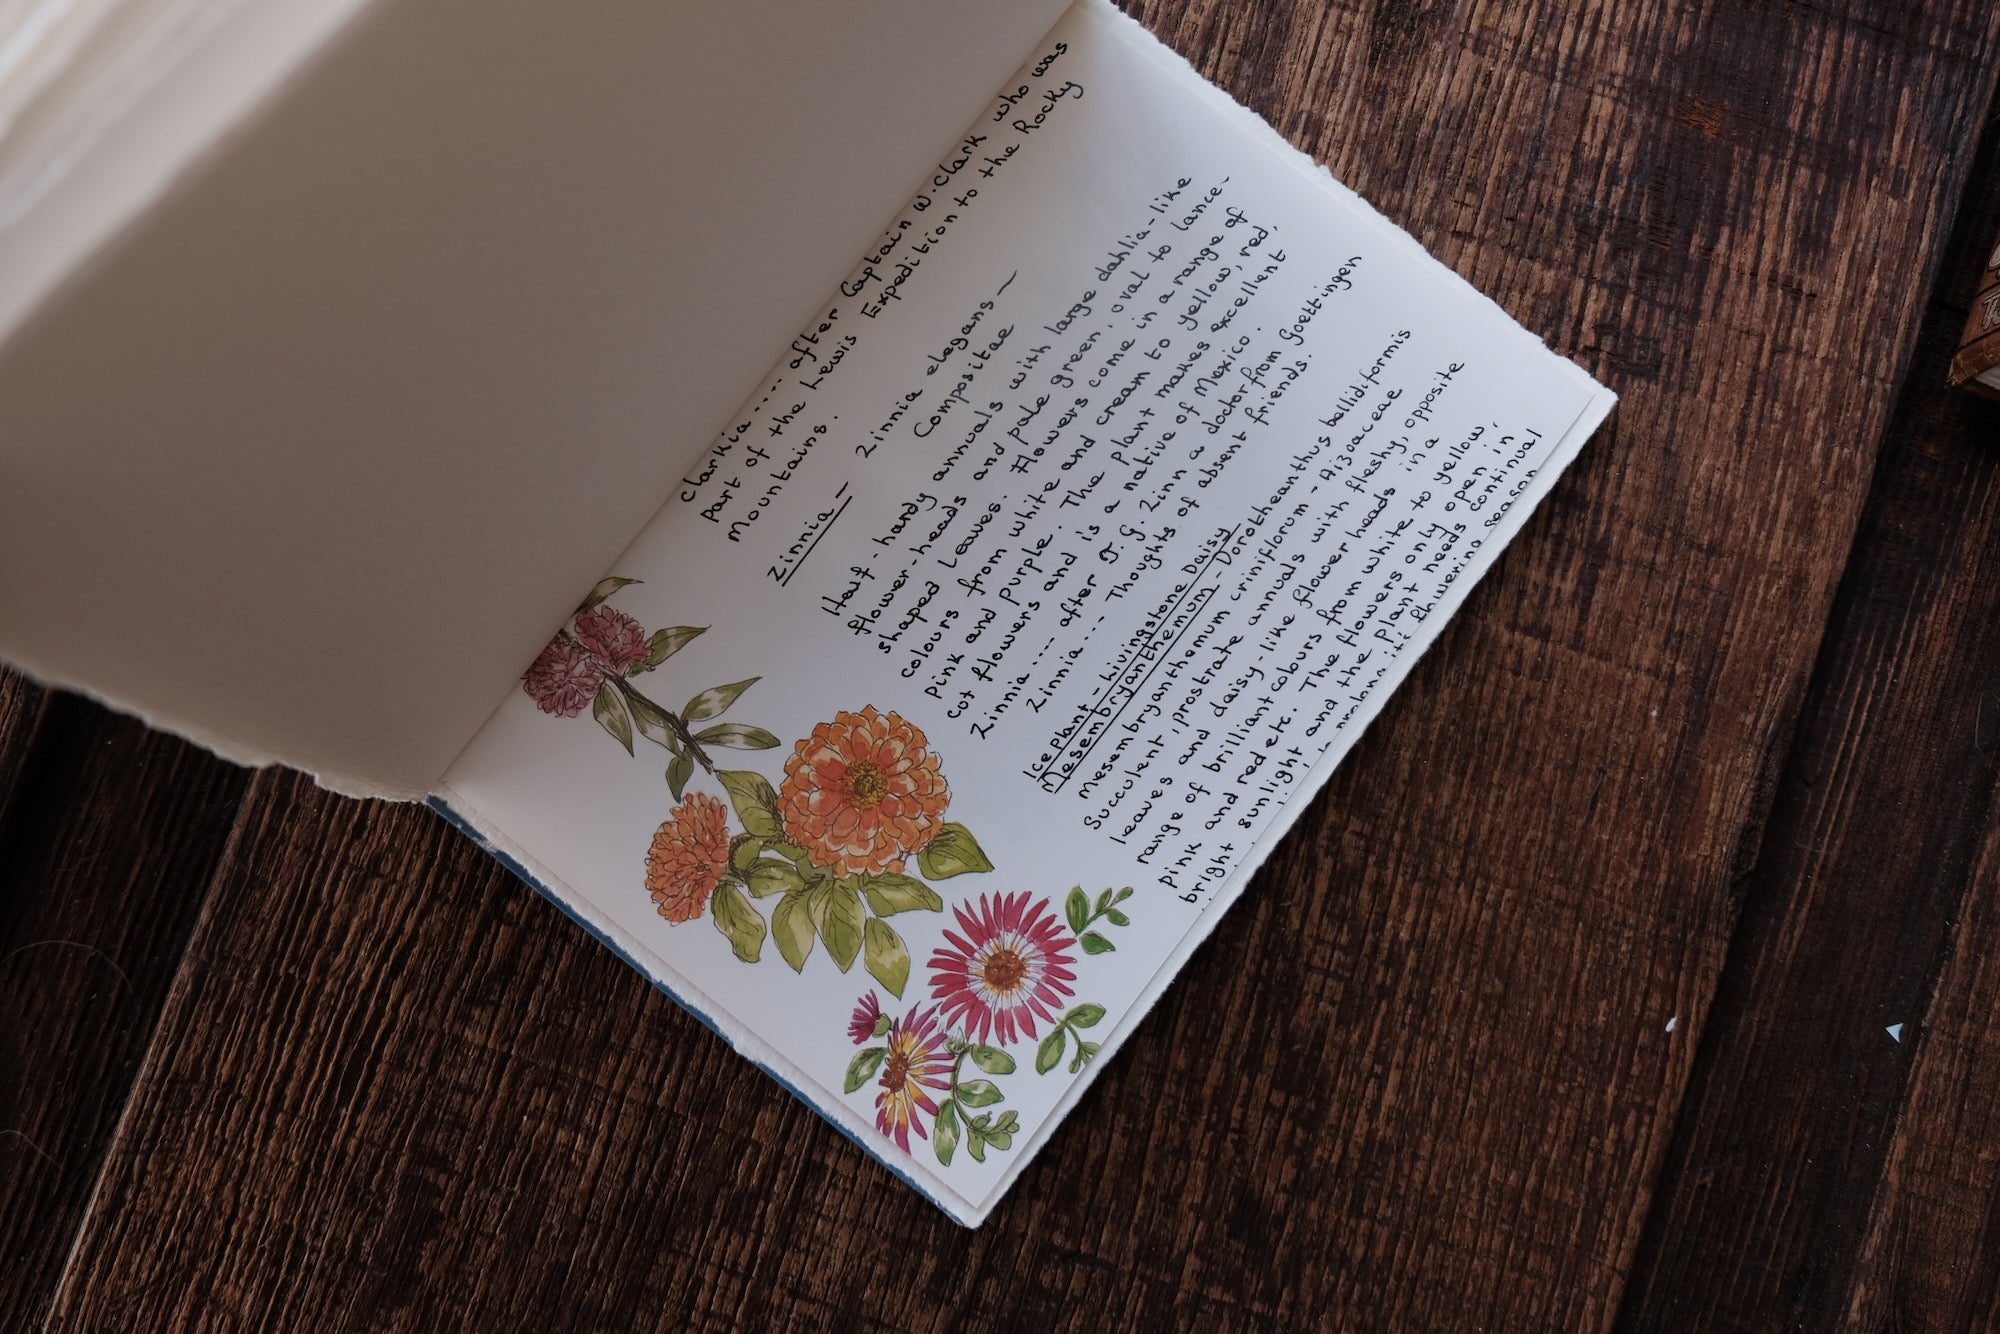 Clarkia .... after Captain W. Clark who was
part of the Lewis Expedition to the Rocky
Mountains.
Zinnia - Zinnia elegans -
Compositae
Half-hardy annuals with large dahlia-like
flower-heads and pale green, oval to lance-
shaped leaves. Flowers come in a range of
colours from white and cream to yellow, red,
pink and purple. The plant makes excellent
cut flowers and is a native of Mexico.
Zinnia .... after J. G. Zinn a doctor from Goettingen
Zinnia .... Thoughts of absent friends.
Ice Plant - Livingstone Daisy
Mesembryanthemum - Dorotheanthus bellidiformis
Mesembryanthemum criniflorum - Aizoaceae
Succulent, prostrate annuals with fleshy, opposite
leaves and daisy-like flower heads in a
range of brilliant colours from white to yellow
pink and red etc. The flowers only open in
bright sunlight and the plant needs continual
to prolong it's flowering season